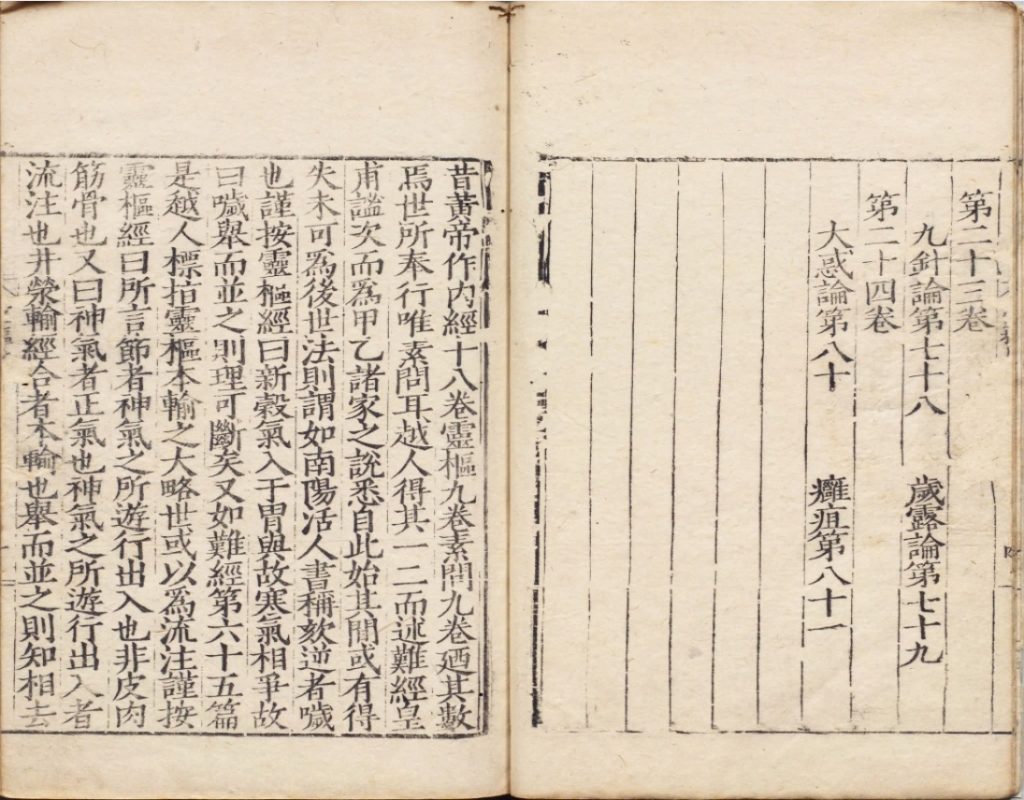 第二十三卷
九針論第七十八 歲露論第七十九
第二十四卷
大惑論第八十 癰疽第八十一
昔黃帝作內經十八卷靈樞九卷素問九卷廼其數
焉世所奉行唯素問耳越人得其一二而述難經皇
甫謐次而爲甲乙諸家之說悉自此始其間或有得
失未可爲後世法則謂如南陽活人書稱欬逆者噦
也謹按靈樞經曰新糓氣入于胃與故寒氣相爭故
曰噦舉而並之則理可斷矣又如難經第六十五篇
是越人標指靈樞本輸之大略世或以爲流注謹按
靈樞經曰所言節者神氣之所遊行出入也非皮肉
筋骨也又曰神氣者正氣也神氣之所遊行出入者
流注也井滎輸經合者本輸也舉而並之則知相去